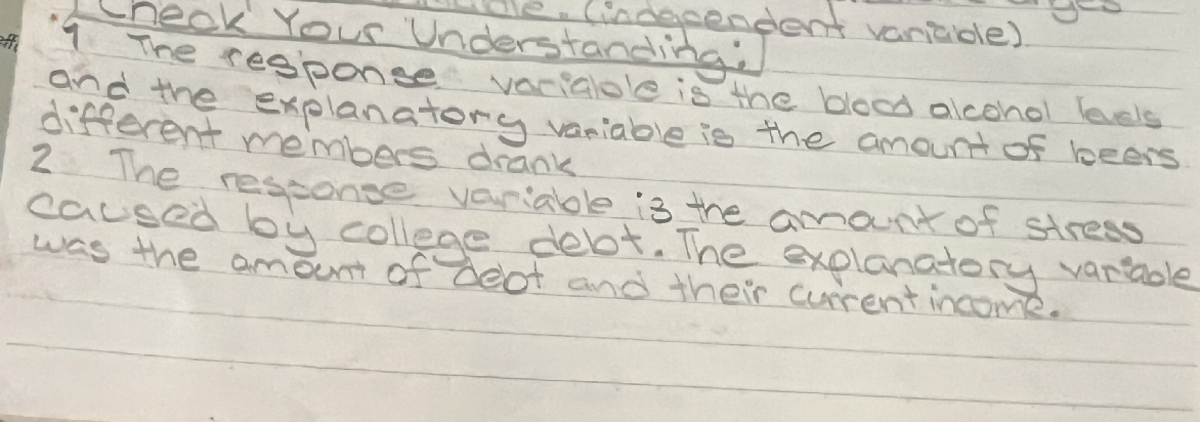 (independent variable)
Check Your Understanding:
1 The response variable is the blood alcohol levels
and the explanatory variable is the amount of beers
different members drank
2 The response variable is the amount of stress
caused by college debt. The explanatory variable
was the amount of debt and their current income.